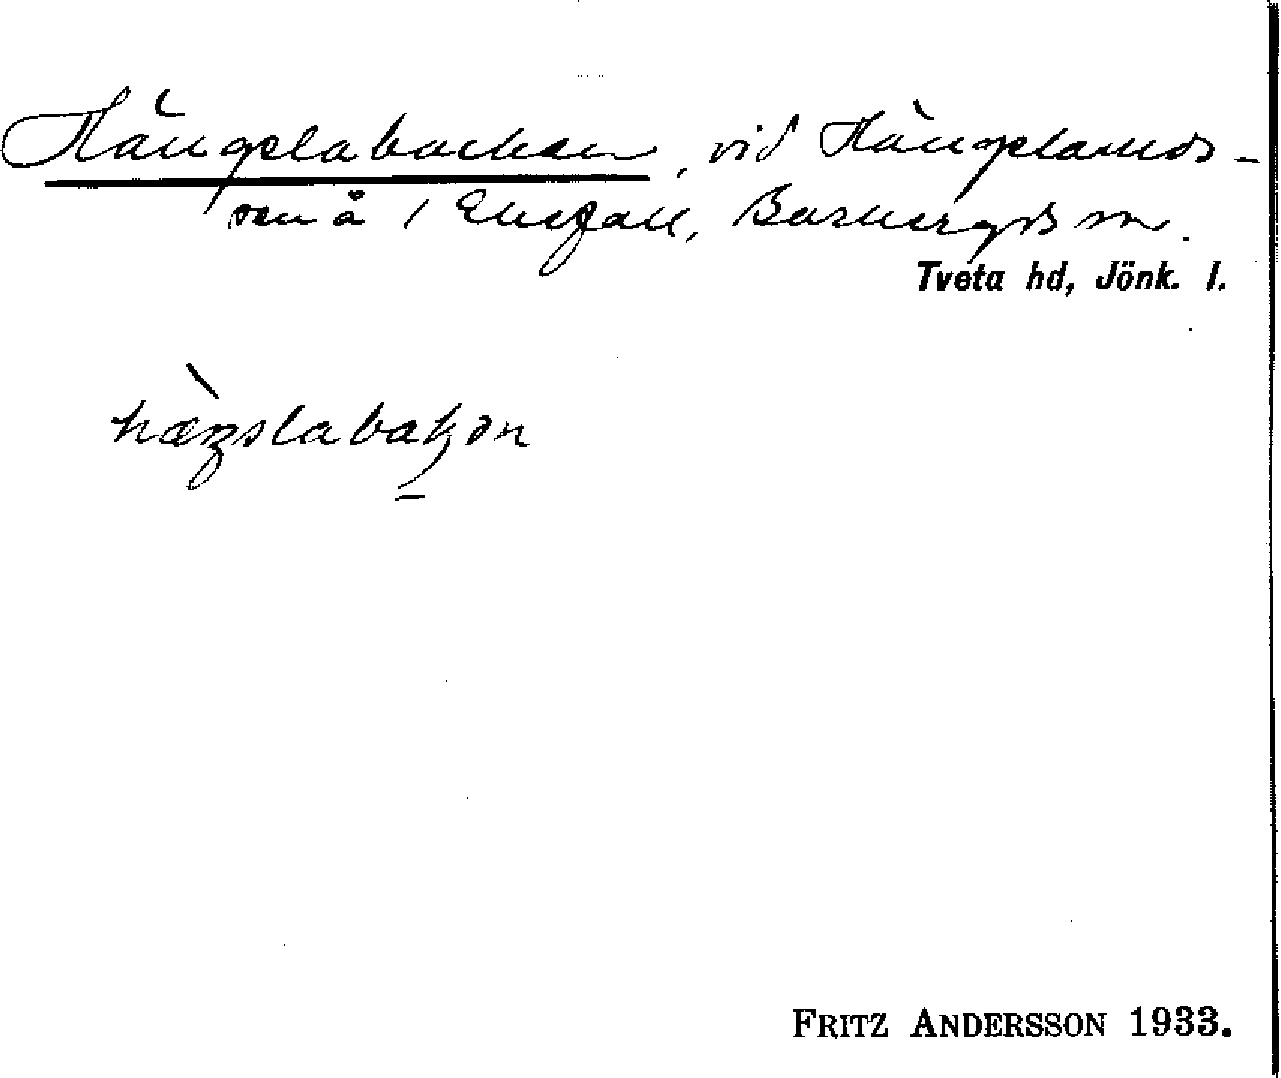 Hängslabacken, vid Hängslamos-
sen å / Ekefall, Barkeryds sn.
Tveta hd, Jönk. l.
hæŋslabakən
FRITZ ANDERSSON 1933.